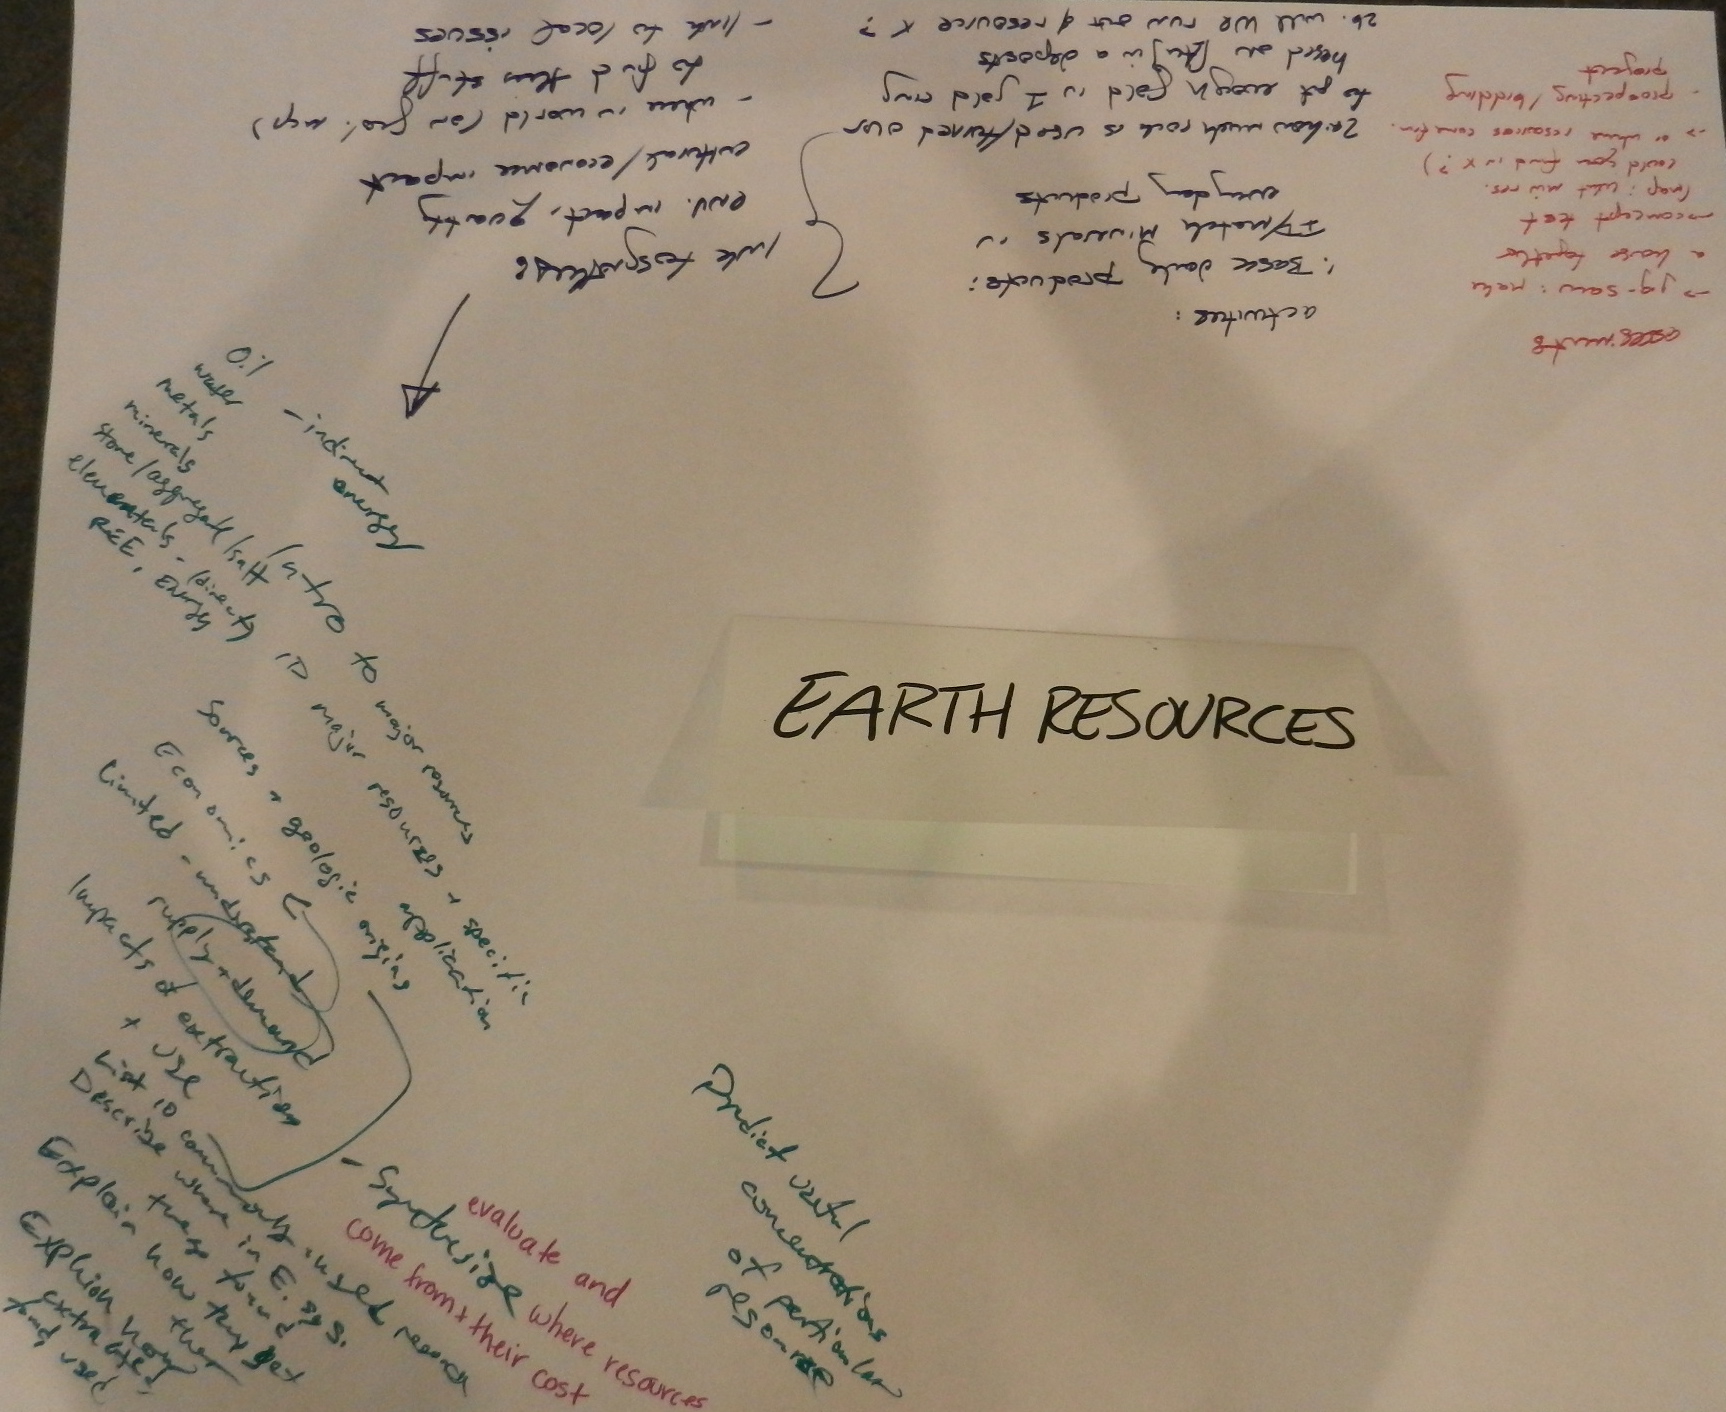 EARTH RESOURCES
activities:
1. Basic daily products:
ID/match minerals in
everyday products
2a. how much rock is used/turned over
to get enough gold in 1 gold ring
based on in a deposits
2b. will we run out of resource x?
link to
env. impact, quantity
cultural/economic impact
- where in world (on geol. map)
to find this stuff
- link to local issues
assessments
→ jig-saw: make
a house together
→ concept test
(map: what min res.
could you find in x?)
→ where resources come
- prospecting/bidding
project
Oil
water
metals
minerals
stone/aggregate/salt
elementals - (directly
REE, Energy
- indirect
energy
Intro to major resources
ID major resources + specific
application
Sources + geologic origins
Economics
Limited - understand
supply + demand
Impacts of extraction
+ use
List 10 commonly used
Describe where in E. sys.
these found
Explain how they get
Explain how
extracted,
used
- Synthesize
evaluate and
where resources
come from + their cost
Predict useful
concentrations
of particular
resource